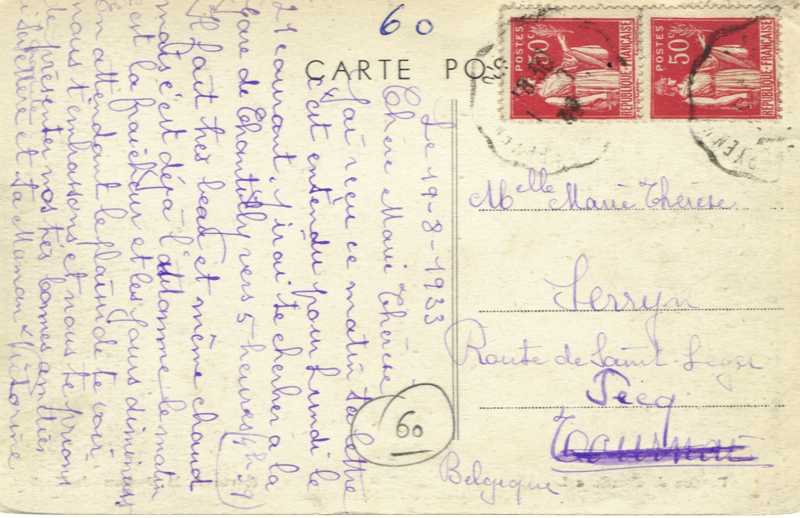 60
CARTE POS
POSTES 50c
REPUBLIQUE FRANÇAISE
POSTES 50c
REPUBLIQUE FRANÇAISE
Le 19-8-1933
Chère Marie Thérèse
J'ai reçu ce matin ta lettre
c'est entendu pour Lundi le
21 courant, j'irai te chercher à la
Gare de Chantilly vers 5 heures (4h59)
Il fait très beau et même chaud
mais c'est déjà l'automne le matin
est la fraicheur et les jours diminuent
En attendant le plaisir de te voir
nous t'embrassons et nous te prions
de présenter nos très bonnes amitiés
à et ta Maman Victorine
Melle Marie Thérèse
Serryn
Route de Saint Leger
Pecq
Tournai
Belgique
60